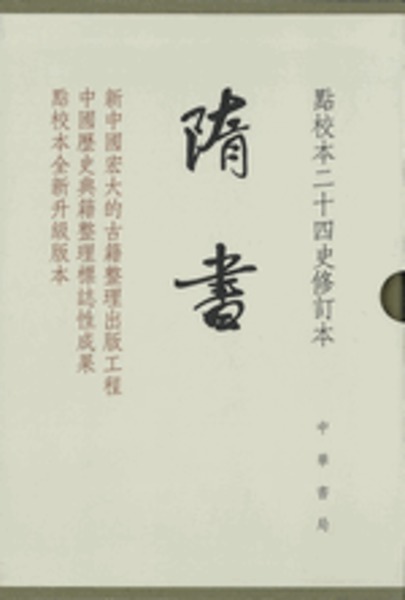 點校本二十四史修訂本
中華書局
隋書
新中國宏大的古籍整理出版工程
中國歷史典籍整理標誌性成果
點校本全新升級版本